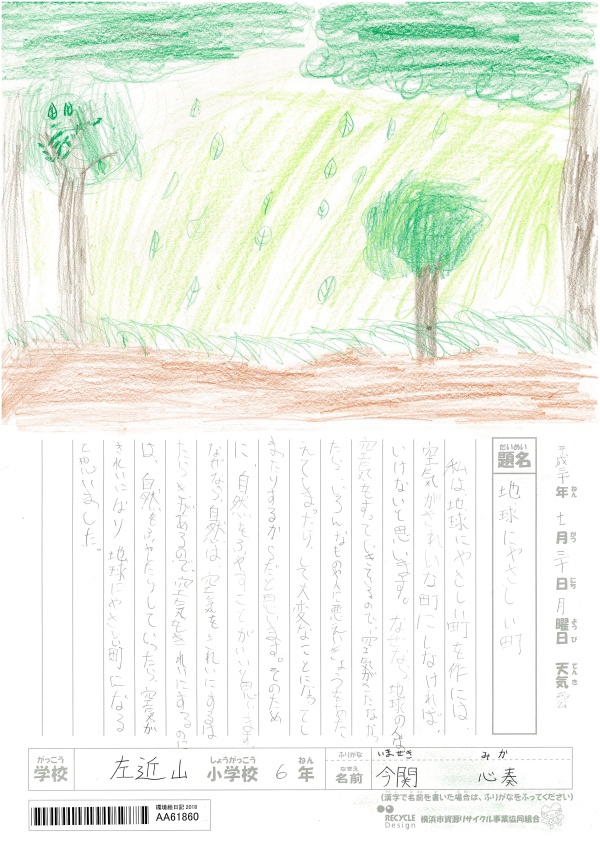 平成三十年 七月 三十日 月曜日 天気
ねん がつ にち ようび てんき
だいめい
題名 地球にやさしい町
私は、地球にやさしい町を作には、
空気がきれいな町にしなければ、
いけないと思います。なぜなら、地球の人は
空気をすっていきているので、空気がきたなかっ
たら、いろんなものや人に悪えいきょうをあた
えてしまったり、して大変なことになってし
まったりするからだと思います。そのため
に、自然をふやすことがいいと思います。
なぜなら、自然は、空気をきれいにするは
たらきがあるので空気をきれいにするのに
は、自然をふやしたりしていったら、空気が
きれいになり、地球にやさしい町になる
と思いました。
がっこう しょうがっこう ねん ふりがな いまぜき みか
学校 左近山 小学校 6年 なまえ 名前 今関 心奏
(漢字で名前を書いた場合は、ふりがなをふってください)
環境絵日記2018
AA61860
RECYCLE Design 横浜市資源リサイクル事業協同組合